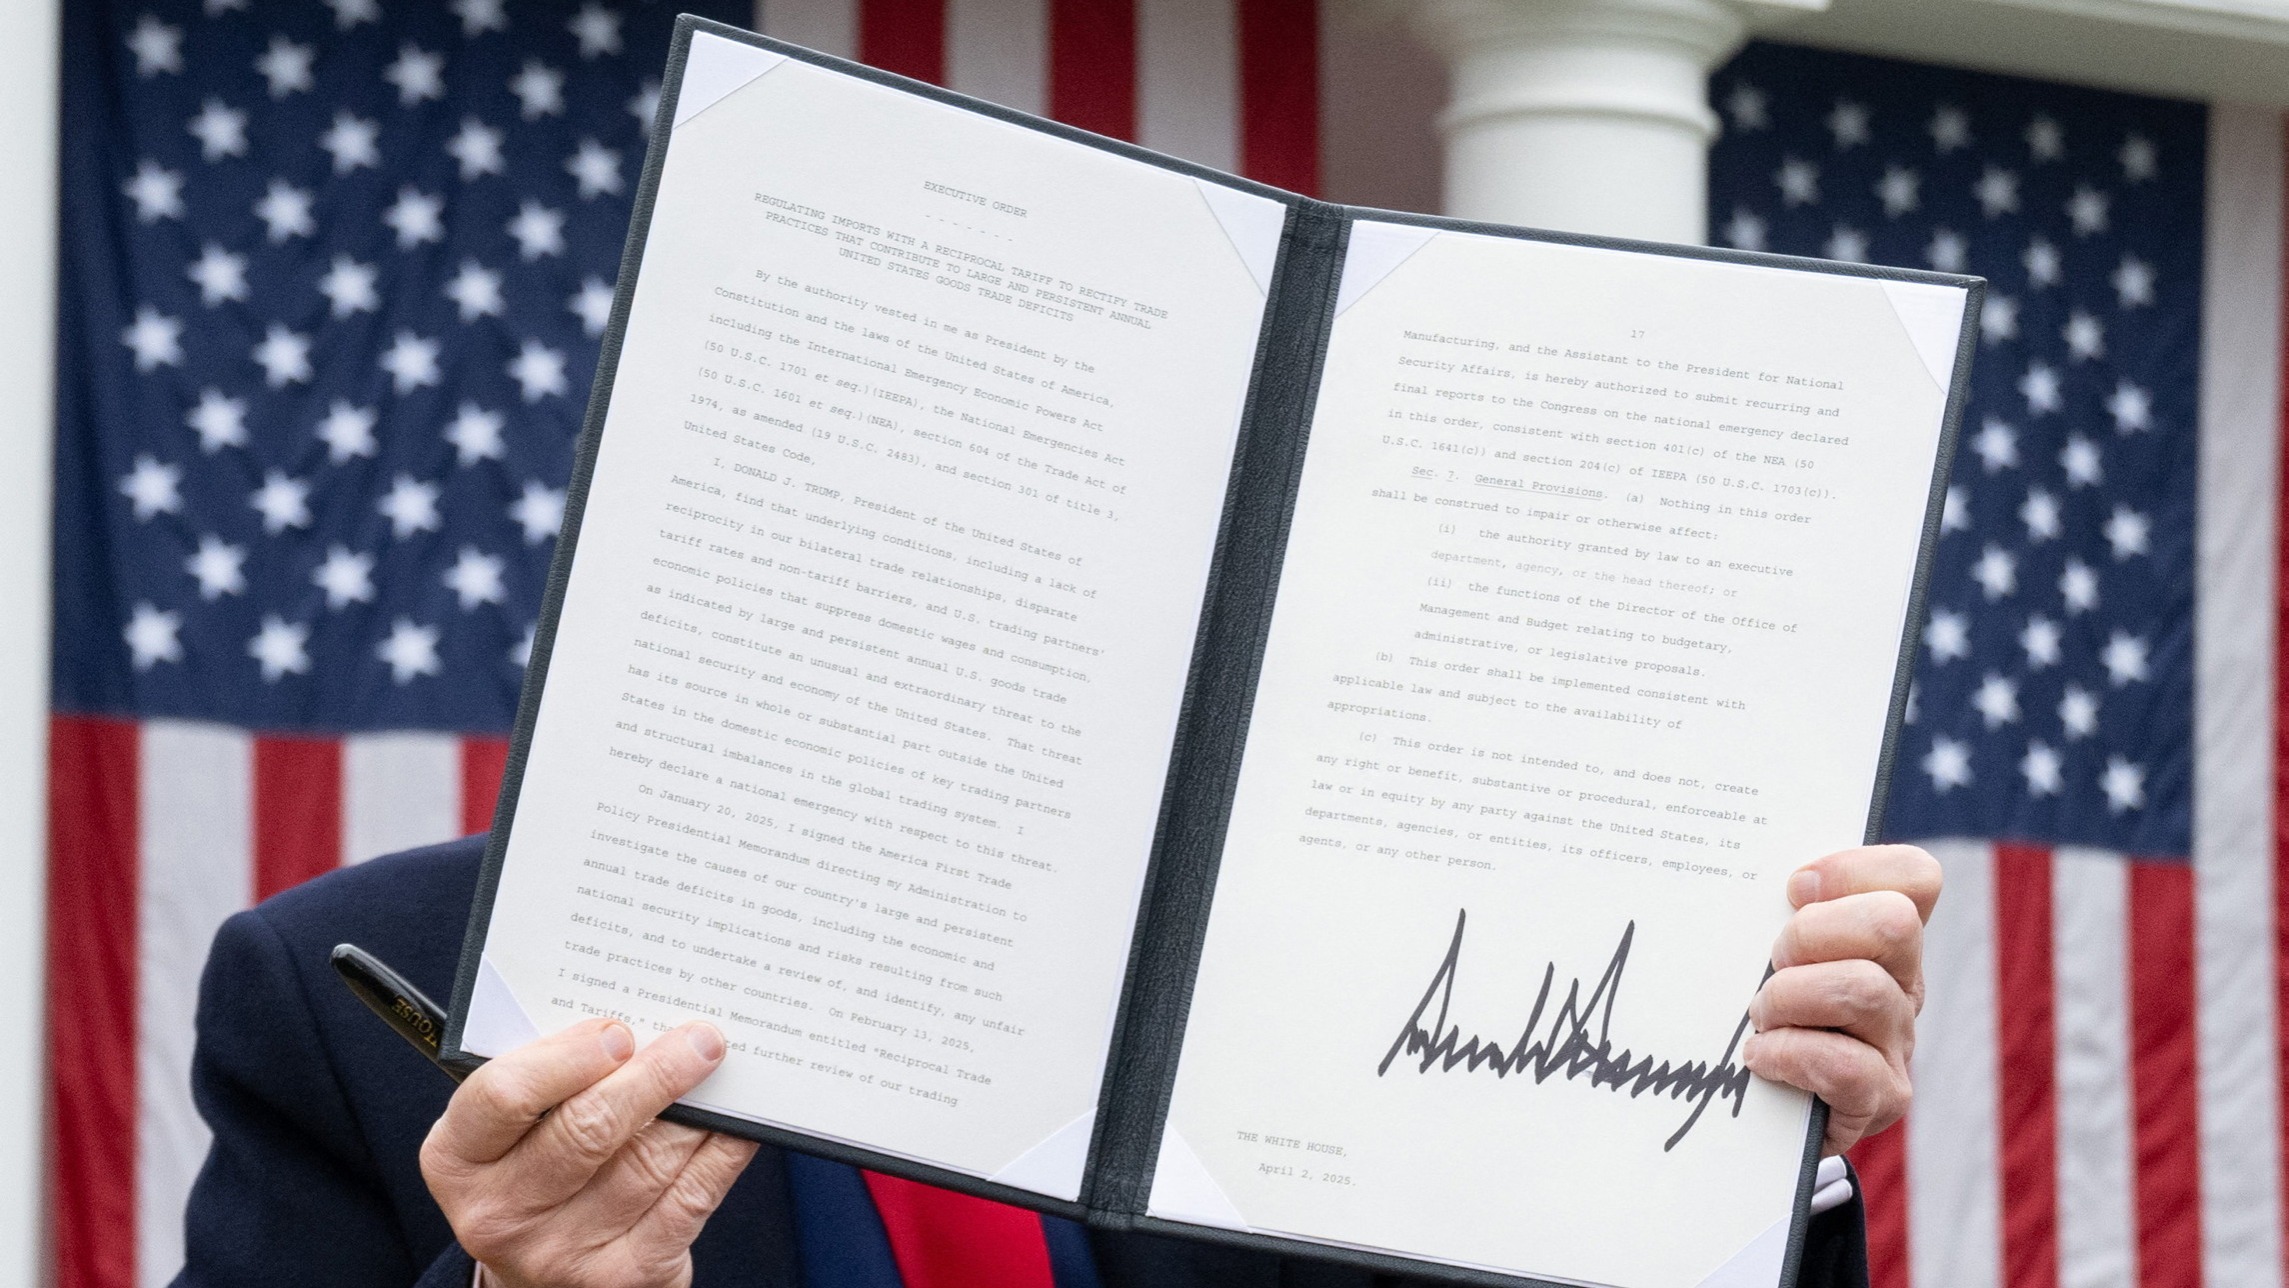 EXECUTIVE ORDER
- - - - - -
REGULATING IMPORTS WITH A RECIPROCAL TARIFF TO RECTIFY TRADE
PRACTICES THAT CONTRIBUTE TO LARGE AND PERSISTENT ANNUAL
UNITED STATES GOODS TRADE DEFICITS
By the authority vested in me as President by the
Constitution and the laws of the United States of America,
including the International Emergency Economic Powers Act
(50 U.S.C. 1701 et seq.)(IEEPA), the National Emergencies Act
(50 U.S.C. 1601 et seq.)(NEA), section 604 of the Trade Act of
1974, as amended (19 U.S.C. 2483), and section 301 of title 3,
United States Code,
I, DONALD J. TRUMP, President of the United States of
America, find that underlying conditions, including a lack of
reciprocity in our bilateral trade relationships, disparate
tariff rates and non-tariff barriers, and U.S. trading partners'
economic policies that suppress domestic wages and consumption,
as indicated by large and persistent annual U.S. goods trade
deficits, constitute an unusual and extraordinary threat to the
national security and economy of the United States. That threat
has its source in whole or substantial part outside the United
States in the domestic economic policies of key trading partners
and structural imbalances in the global trading system. I
hereby declare a national emergency with respect to this threat.
On January 20, 2025, I signed the America First Trade
Policy Presidential Memorandum directing my Administration to
investigate the causes of our country's large and persistent
annual trade deficits in goods, including the economic and
national security implications and risks resulting from such
deficits, and to undertake a review of, and identify, any unfair
trade practices by other countries. On February 13, 2025,
I signed a Presidential Memorandum entitled "Reciprocal Trade
and Tariffs," further review of our trading
17
Manufacturing, and the Assistant to the President for National
Security Affairs, is hereby authorized to submit recurring and
final reports to the Congress on the national emergency declared
in this order, consistent with section 401(c) of the NEA (50
U.S.C. 1641(c)) and section 204(c) of IEEPA (50 U.S.C. 1703(c)).
Sec. 7. General Provisions. (a) Nothing in this order
shall be construed to impair or otherwise affect:
(i) the authority granted by law to an executive
department, agency, or the head thereof; or
(ii) the functions of the Director of the Office of
Management and Budget relating to budgetary,
administrative, or legislative proposals.
(b) This order shall be implemented consistent with
applicable law and subject to the availability of
appropriations.
(c) This order is not intended to, and does not, create
any right or benefit, substantive or procedural, enforceable at
law or in equity by any party against the United States, its
departments, agencies, or entities, its officers, employees, or
agents, or any other person.
THE WHITE HOUSE,
April 2, 2025.